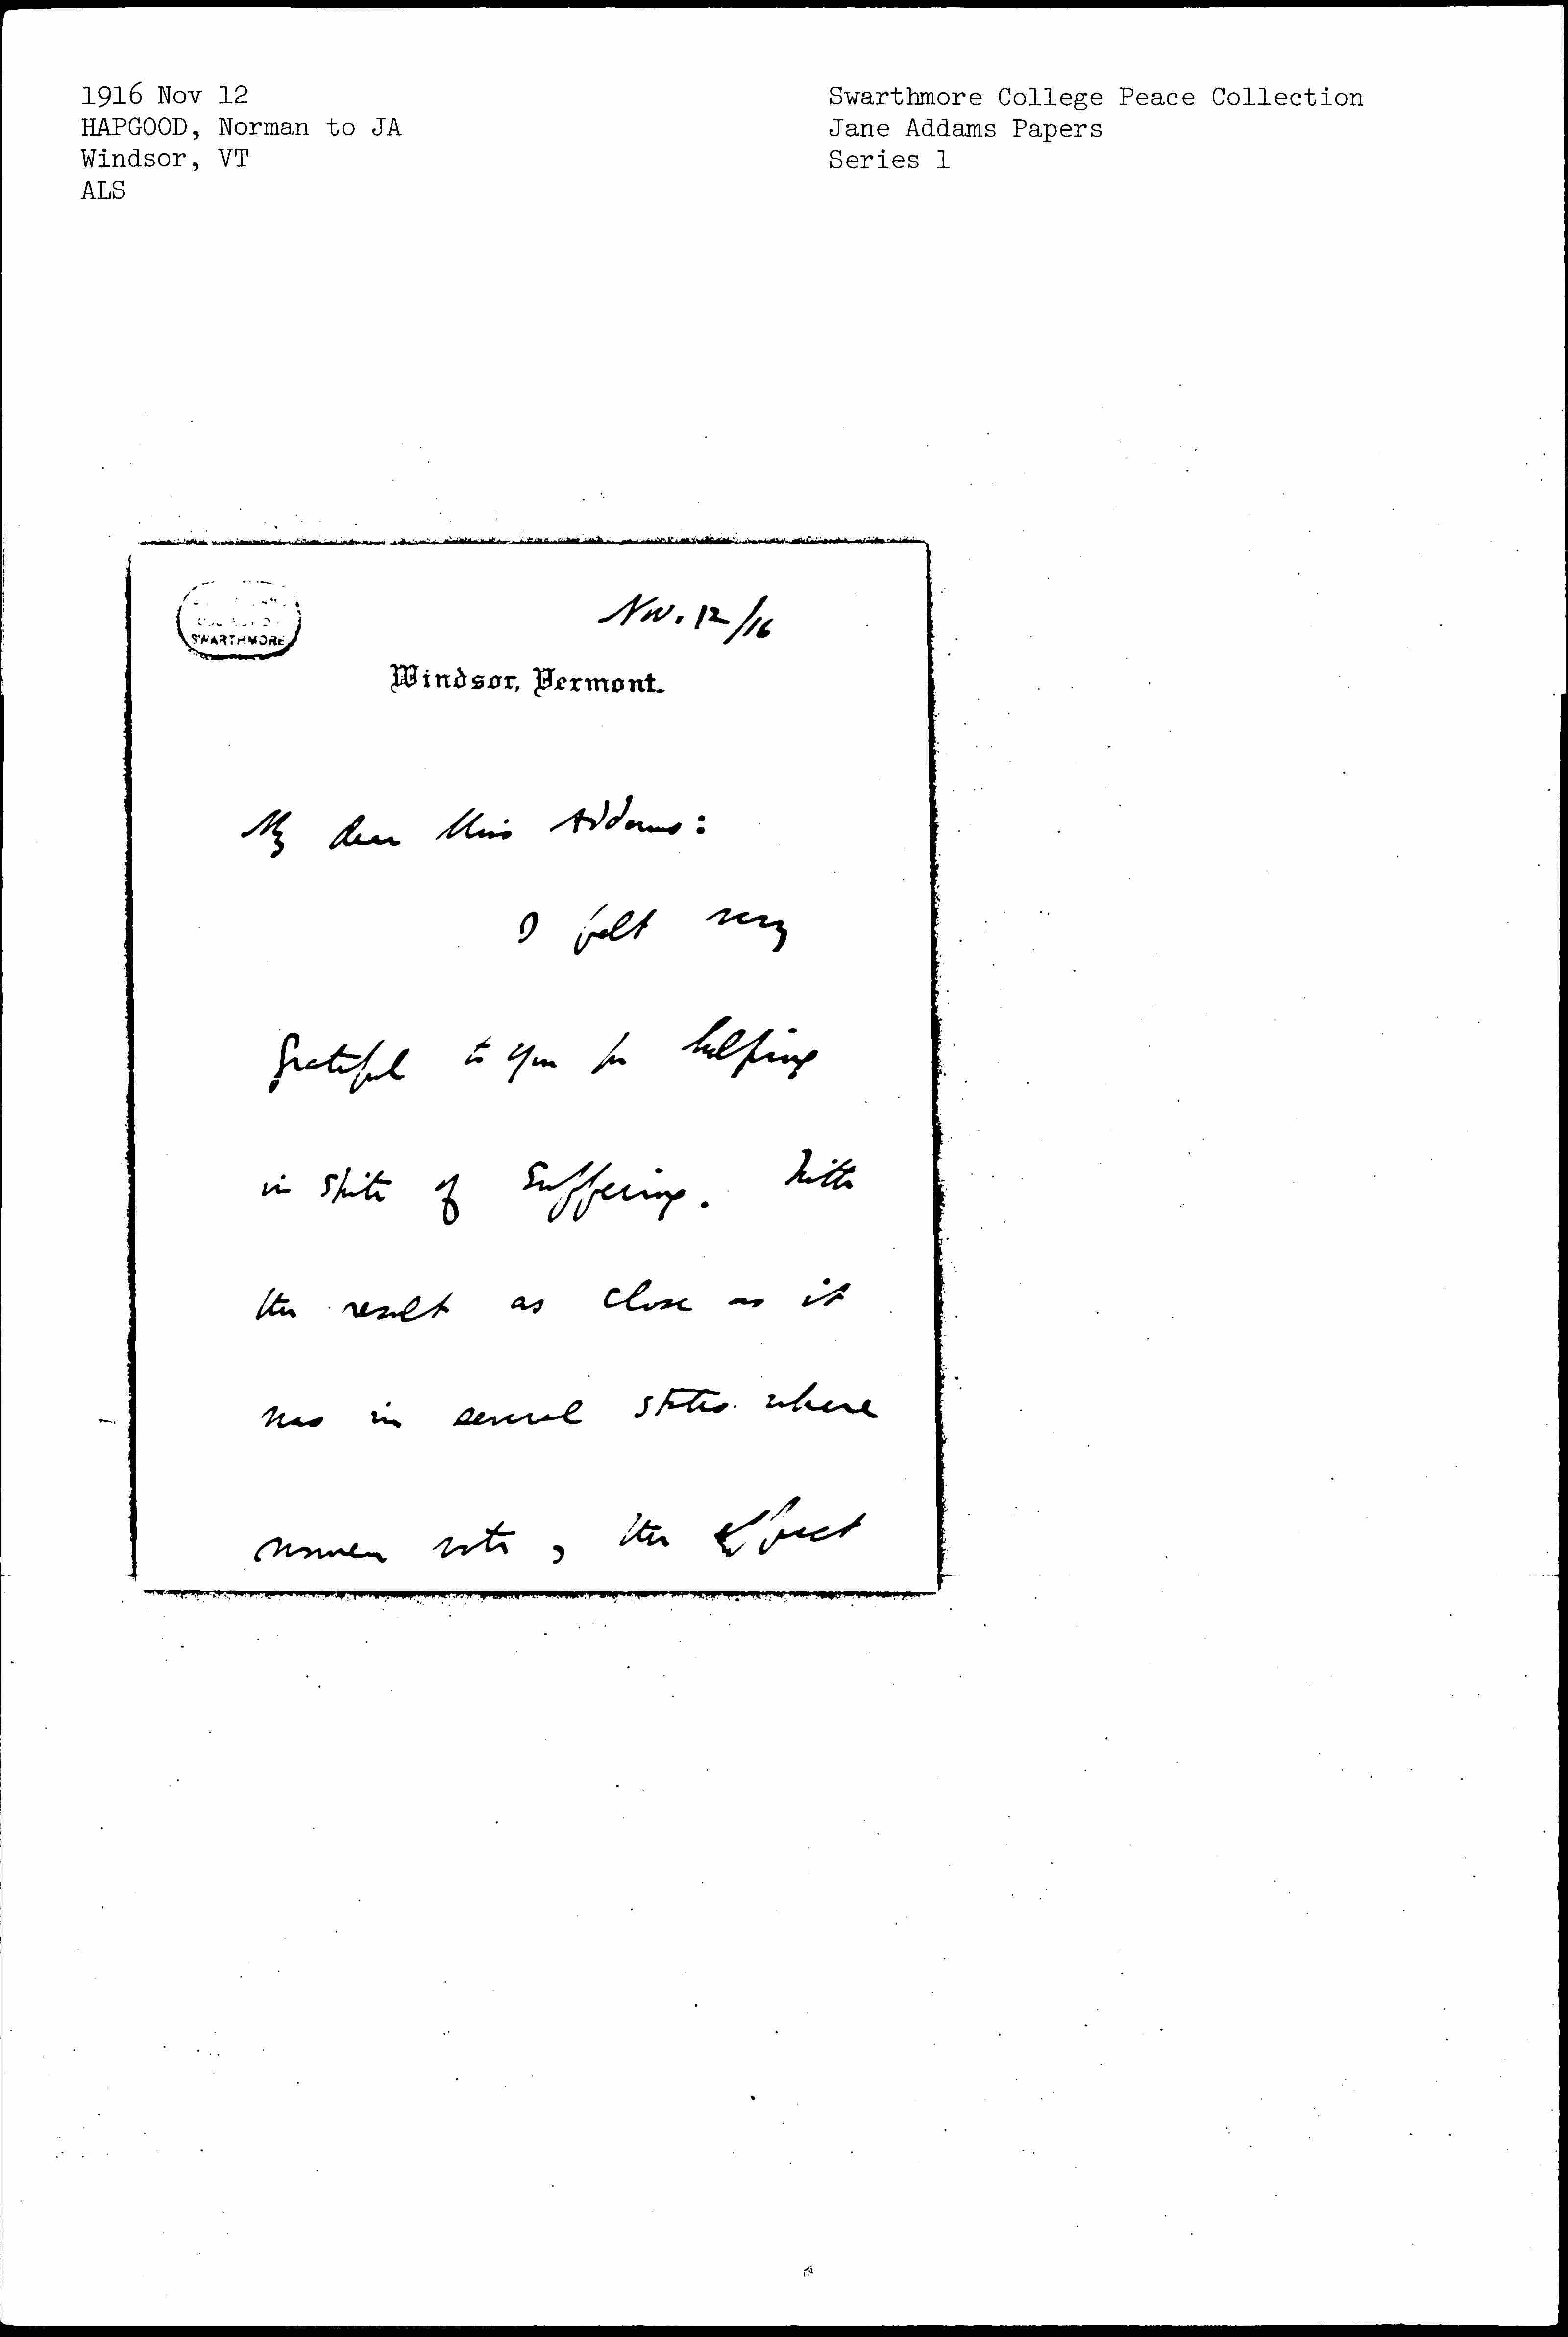 1916 Nov 12
HAPGOOD, Norman to JA
Windsor, VT
ALS
Swarthmore College Peace Collection
Jane Addams Papers
Series 1
SWARTHMORE
Nov. 12/16
Windsor, Vermont.
My dear Miss Addams:
I felt very
grateful to you for helping
in spite of suffering. With
the result as close as it
was in several states where
women vote, the effect